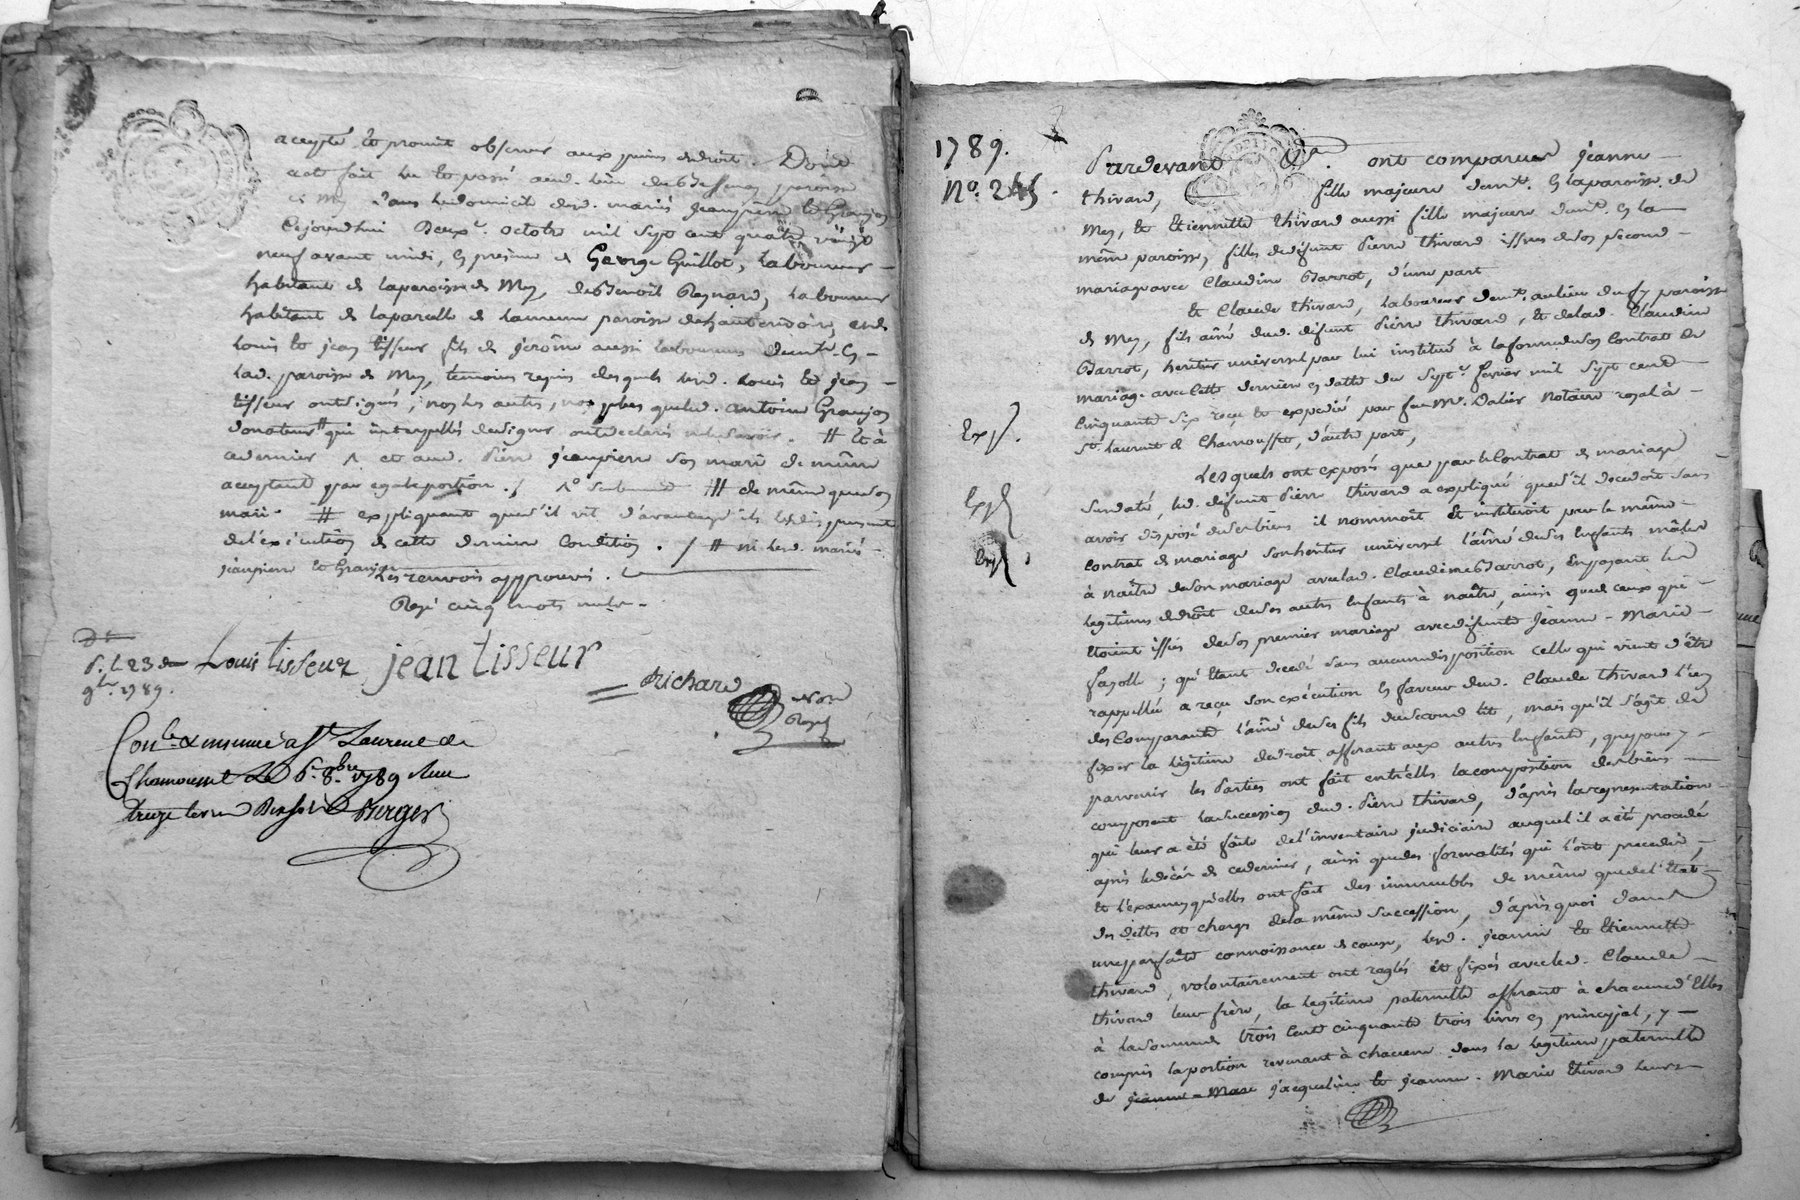 accepté et promit observer aux peines de droit. Dont
acte fait lu et passé aud. lieu paroisse
de Mey dans le domicile desd. mariés Jeanpierre et Granjon
cejourdhui deuxe. octobre mil sept cent quatre vingt
neuf avant midi, en présence de George Guillot, laboureur
habitant de laparoisse de Mey, de Benoît Reynard, laboureur
habitant de laparcelle de la même paroisse dehauterivoire, et de
Louis et jean tisseur fils de jerôme aussi laboureurs demts. en
lad. paroisse de Mey, témoins requis desquels lesd. Louis et jean
tisseur ont signés, non les autres, non plus queled. antoine Granjon
donateur # qui interpellés de signer ont déclarés ne le savoir. # et à
cedernier et aud. Jeanpierre son mari de même
acceptant par egale portion. /. # de même queson
mari. # expliquant ques'il vit d'avantage ils
del'exécution de cette dernière condition. / # ni lesd. mariés
jeanpierre et Granjon
Les renvois approuvés.
Rayé cinq mots nuls.
D. L. 23 du
9bre. 1789.
Louis tisseur jean tisseur
Richard
Nore
Royal
Conlé. & insinué a St. Laurent de
Chamousset Le 6. 8bre. 1789 Reçu
treize livres Berger
1789.
No. 245.
Pardevant &a. ont comparues Jeanne
thivard, fille majeure demte. en laparoisse de
Mey, et Etiennette thivard aussi fille majeure demte. en la
même paroisse, filles dedéfunt Pierre thivard issues deson second
mariage avec Claudine Barrot, d'une part
Et Claude thivard, laboureur demt. aulieu du paroisse
de Mey, fils aîné dud. défunt Pierre thivard, et de lad. Claudine
Barrot, héritier universel par lui institué à laforme deson Contrat de
mariage avec cette dernière en datte du sept. fevrier mil sept cent
cinquante six reçu et expédié par feu Me. Dalier Notaire royal à
St. Laurent de Chamousset, d'autre part,
Exp.
Lesquels ont exposés que par le Contrat de mariage
Exp.
susdaté, led. défunt Pierre thivard a expliqué ques'il decedoit sans
avoir disposé deses biens il nommoit Et instituoit par le même
Exp.
contrat de mariage son heritier universel l'aîné deses Enfants mâles
à naître deson mariage aveclad. Claudine Barrot, En payant les
legitimes dedroit deses autres Enfants à naître, ainsi qued ceux qui
étoient issus deson premier mariage avec défunte Jeanne-Marie
fayolle; qu'étant decedé sans aucune disposition celle qui vient d'être
rappellée a reçu son exécution en faveur dud. Claude thivard l'un
des Comparants l'aîné deses fils du second lit, mais qu'il s'agit de
fixer la légitime dedroit afferant aux autres Enfants, que pour y
parvenir les Parties ont fait entr'elles la composition desbiens
composent lasuccession dud. Pierre thivard, d'après la representation
qui leur a été faite del'inventaire judiciaire auquel il a été procedé
après ledécès de cedernier, ainsi quedes formalités qui l'ont precedés,
Et l'examen qu'elles ont fait des immeubles de même quedel'Etat
des dettes et charges dela même succession, d'après quoi dans
une parfaite connoissance de cause, lesd. jeanne et Etiennette
thivard, volontairement ont reglés et fixés avecled. Claude
thivard leur frère, la legitime paternelle afferant à chacune d'Elles
à lasomme de trois cent cinquante trois livres en principal, y
compris la portion revenant à chacune dans la legitime paternelle
de jeanne-Marie jacqueline et jeanne-Marie thivard leurs